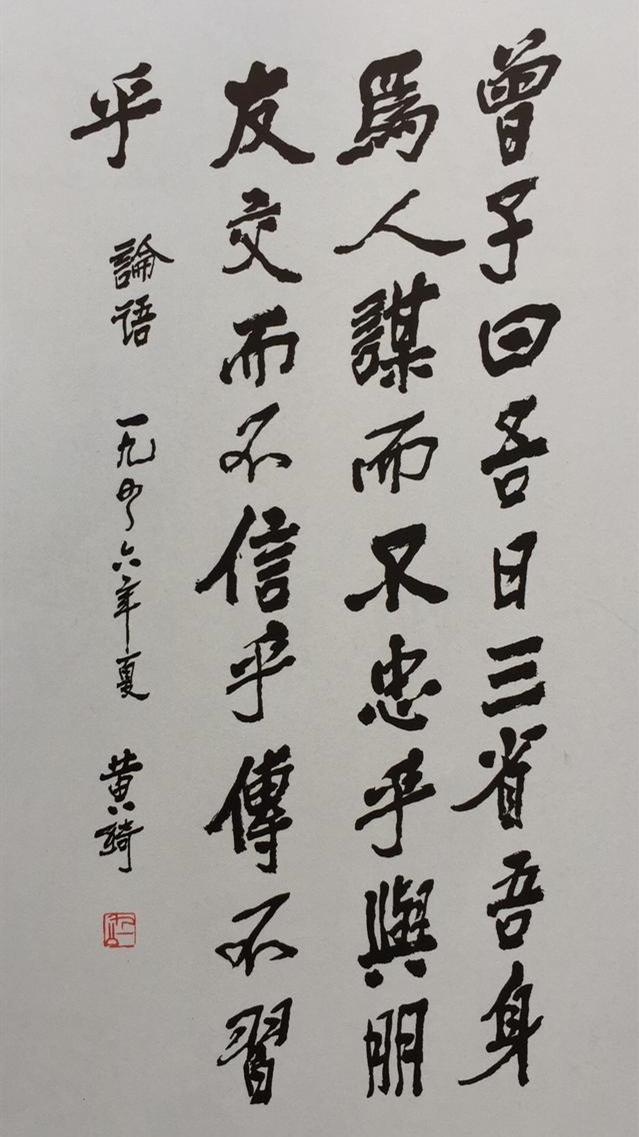 曾子曰吾日三省吾身
爲人謀而不忠乎與朋
友交而不信乎傳不習
乎 論语 一九六年夏 黄